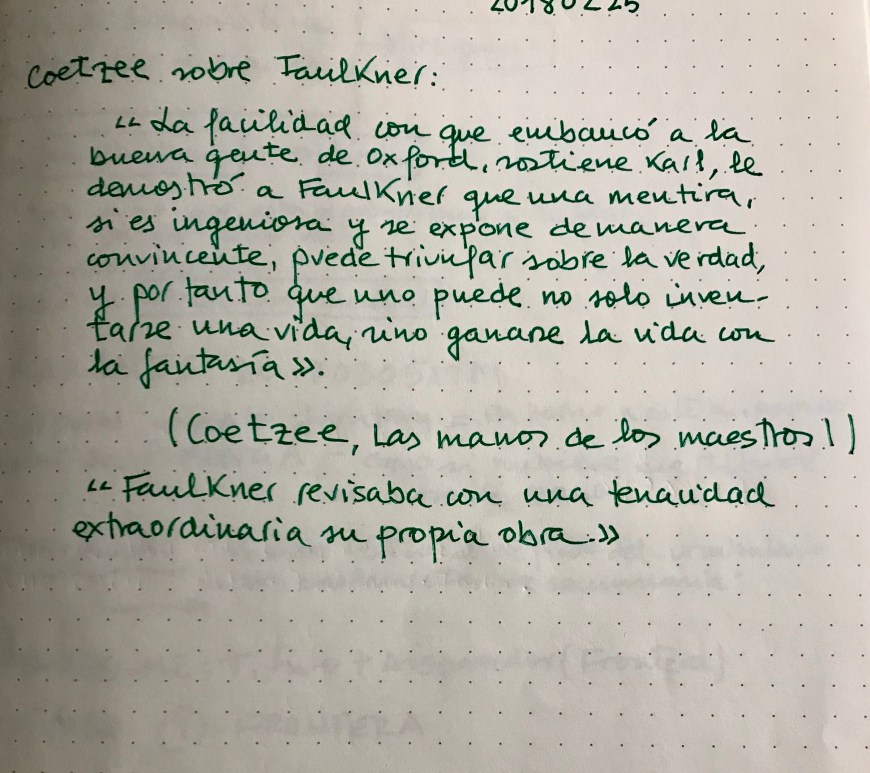 20180225
Coetzee sobre Faulkner:
«La facilidad con que embaucó a la
buena gente de Oxford, sostiene Karl, le
demostró a Faulkner que una mentira,
si es ingeniosa y se expone de manera
convincente, puede triunfar sobre la verdad,
y por tanto que uno puede no solo inven-
tarse una vida, sino ganarse la vida con
la fantasía».
(Coetzee, Las manos de los maestros I)
«Faulkner revisaba con una tenacidad
extraordinaria su propia obra.»